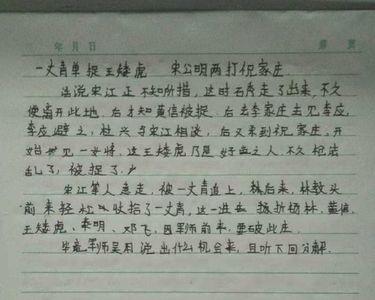 年 月 日
一丈青单捉王矮虎 宋公明两打祝家庄
话说宋江正不知所措，这时石秀走了出来，不久
便离开此地，后才知黄信被捉，后去李家庄去见李应，
李应避之，杜兴与宋江相谈，后又来到祝家庄，开
始见一女将，这王矮虎乃是好色之人，不久枪法
乱了，被捉了，
宋江等人急走，被一丈青追上，林后来，林教头
前来轻松收拾了一丈青，这一进去 损折杨林、黄信、
王矮虎、秦明、邓飞，因军师前来，要破此庄，
毕竟军师吴用说出什么机会来，且听下回分解．